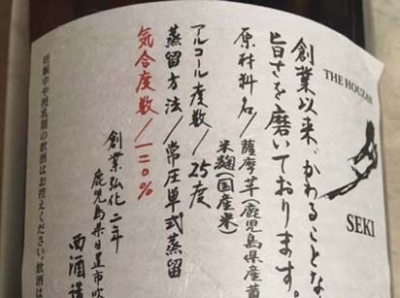 THE HOUZAN
夕
SEKI
創業以来、かわることな
旨さを磨いております。
原材料名/薩摩芋(鹿児島県産黄
米麹(国産米)
アルコール度数/25度
蒸留方法/常圧単式蒸留
気合度数/一二〇%
創業弘化二年
鹿児島県日置市吹
西酒造
妊娠中や授乳期の飲酒はお控えください。飲酒は